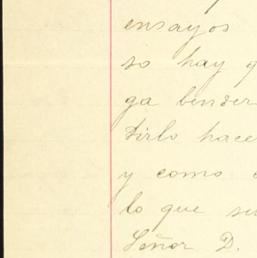 ensayos
so hay
ga bender
tirlo hace
y como
lo que
Señor D.